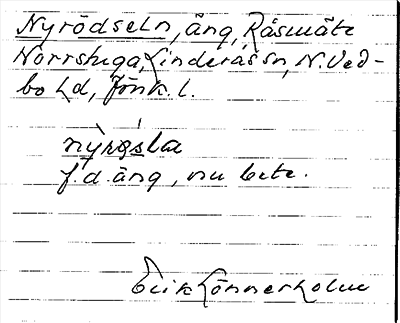 Nyrödseln, äng, Råsmåte
Norrstuga, Linderås sn, N. Ved-
bo hd, Jönk. l.
nỳrǫ́sla
f.d. äng, nu bete.
Erik Lönnerholm